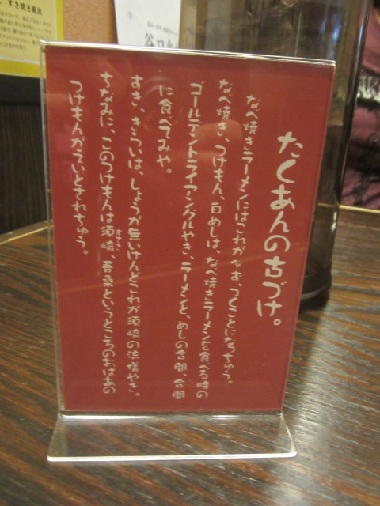 たくあんの古づけ。
なべ焼きラーメンにはこれがなあ、つくことになっちゅう。
なべ焼き、つけもん、白めしは、なべ焼きラーメンを食べる時の
ゴールデントライアングルやき、ラーメンと、めしの合間、合間
に食べてみや。
すき、きらいは、しょうが無いけんどこれが須崎の法律やき。
ちなみに、このつけもんは須崎、吾桑というところのおばあの
つけもんがえいとされちゅう。